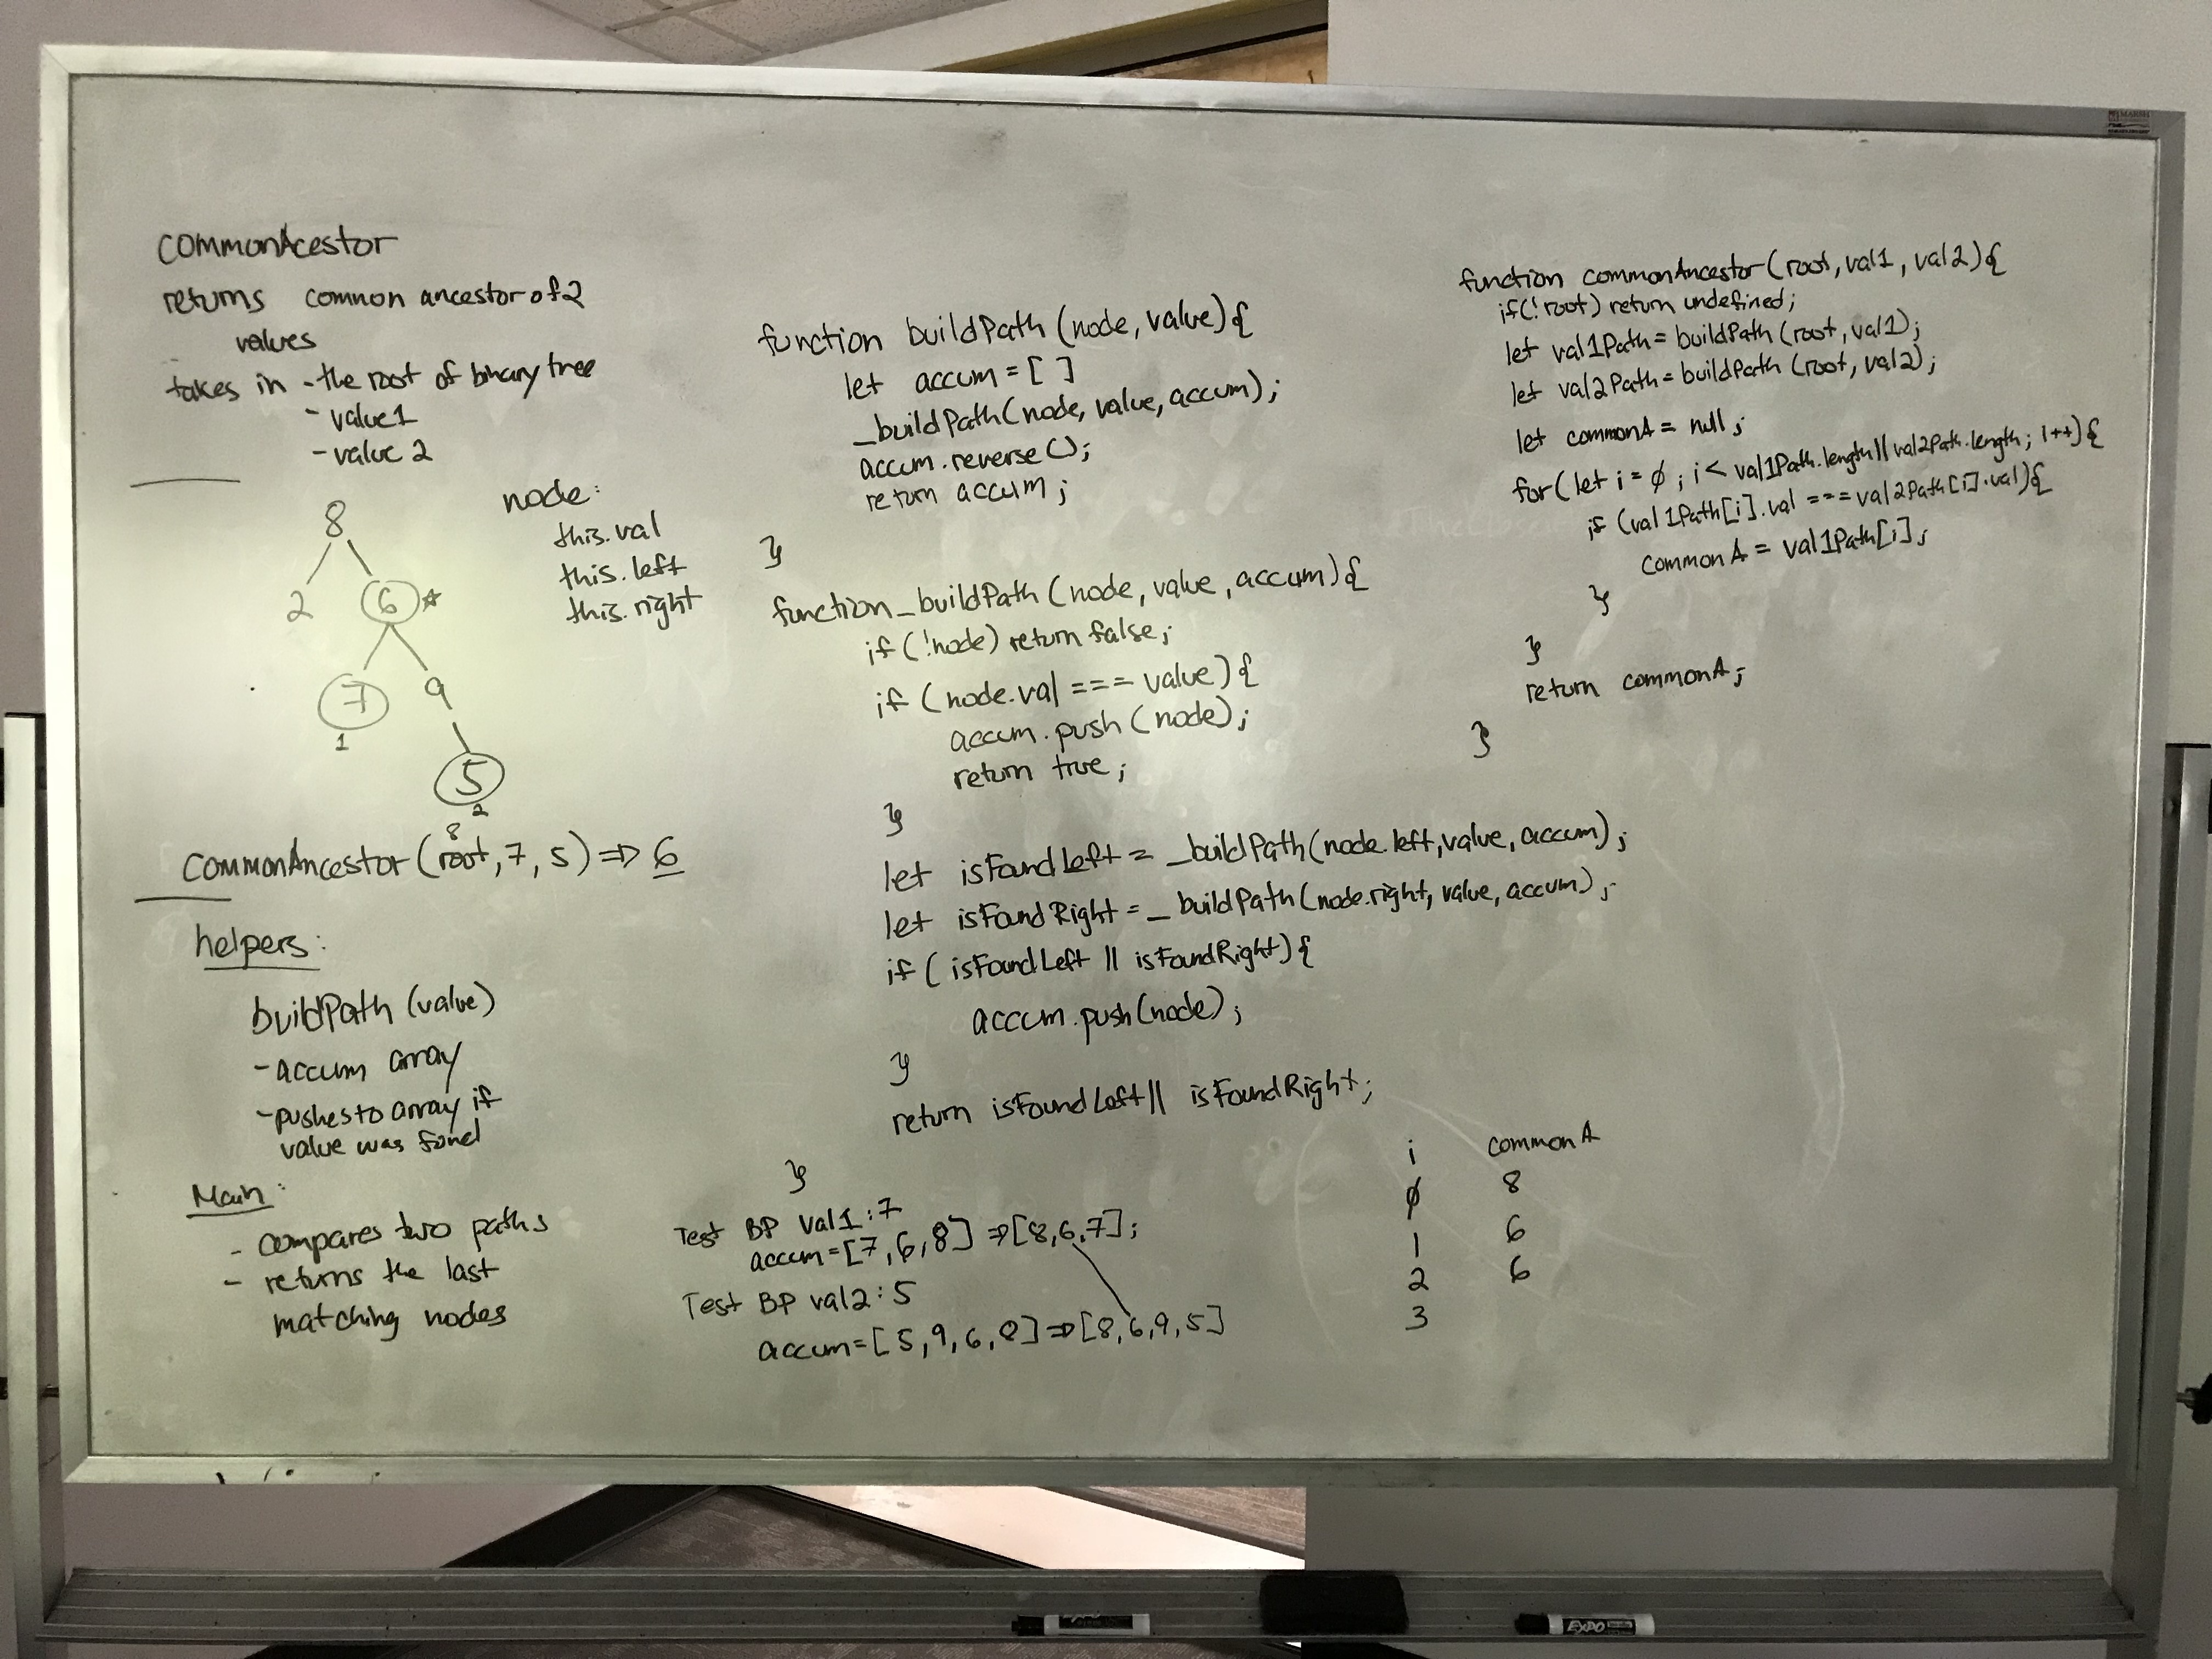 commonAcestor
returns common ancestor of 2
values
takes in - the root of binary tree
- value1
- value 2
8
2 6
7 9
1
5
2
node:
this.val
this.left
this.right
8
commonAncestor(root, 7, 5) => 6
helpers:
buildPath (value)
- accum array
- pushes to array if
value was found
Main:
- compares two paths
- returns the last
matching nodes
function buildPath (node, value){
let accum = [ ]
_buildPath(node, value, accum);
accum.reverse();
return accum;
}
function _buildPath (node, value, accum){
if (!node) return false;
if (node.val === value){
accum.push(node);
return true;
}
let isFoundLeft = _buildPath(node.left, value, accum);
let isFoundRight = _buildPath(node.right, value, accum);
if (isFoundLeft || isFoundRight){
accum.push(node);
}
return isFoundLeft || isFoundRight;
}
Test BP val1: 7
accum=[7, 6, 8] => [8, 6, 7];
Test BP val2: 5
accum=[5, 9, 6, 8] => [8, 6, 9, 5]
function commonAncestor(root, val1, val2){
if(!root) return undefined;
let val1Path = buildPath (root, val1);
let val2Path = buildPath (root, val2);
let commonA = null;
for(let i = 0; i < val1Path.length || val2Path.length; i++){
if (val1Path[i].val === val2Path[i].val){
commonA = val1Path[i];
}
}
return commonA;
}
i commonA
0 8
1 6
2 6
3
EXPO